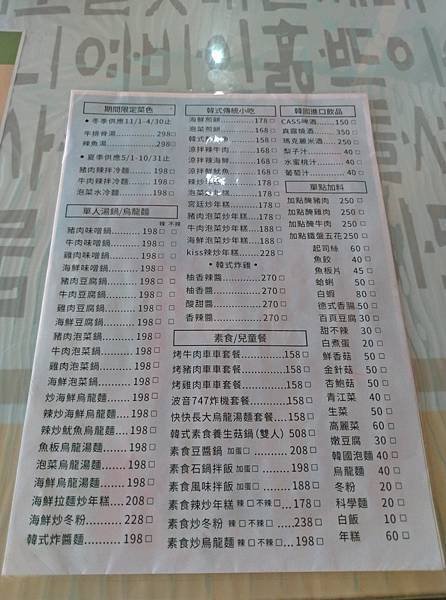 期間限定菜色
•冬季供應11/1-4/30止
牛排骨湯............298□
辣魚湯...............298□
•夏季供應5/1-10/31止
豬肉辣拌冷麵......198□
牛肉辣拌冷麵......198□
泡菜水冷麵.........198□
單人湯鍋/烏龍麵
辣 不辣
豬肉味噌鍋......198□ □
牛肉味噌鍋......198□ □
雞肉味噌鍋......198□ □
海鮮味噌鍋......198□ □
豬肉豆腐鍋......198□ □
牛肉豆腐鍋......198□ □
雞肉豆腐鍋......198□ □
海鮮豆腐鍋......198□ □
豬肉泡菜鍋.........198□
牛肉泡菜鍋.........198□
雞肉泡菜鍋.........198□
海鮮泡菜鍋.........198□
炒海鮮烏龍麵......198□
辣炒海鮮烏龍麵...198□
辣炒魷魚烏龍麵...198□
魚板烏龍湯麵......198□
泡菜烏龍湯麵......198□
海鮮烏龍湯麵......198□
海鮮拉麵炒年糕...208□
海鮮炒冬粉.........228□
韓式炸醬麵.........198□
韓式傳統小吃
海鮮煎餅............178□
泡菜煎餅............168□
涼拌辣牛肉.........178□
涼拌辣海鮮.........168□
涼拌鮮魷魚.........168□
宮廷炒年糕
豬肉泡菜炒年糕...188□
牛肉泡菜炒年糕...188□
海鮮泡菜炒年糕...188□
kiss辣炒年糕......228□
•韓式炸雞•
柚香辣醬......270□
柚香醬.........270□
酸甜醬.........270□
香辣醬.........270□
素食/兒童餐
烤牛肉車車套餐.........158□
烤豬肉車車套餐.........158□
烤雞肉車車套餐.........158□
波音747炸機套餐......158□
快快長大烏龍湯麵套餐...158□
韓式素食養生菇鍋(雙人) 508□
素食豆醬鍋 加蛋□......208□
素食石鍋拌飯 加蛋□...188□
素食風味拌飯 加蛋□...188□
素食辣炒年糕 辣□不辣□...178□
素食炒冬粉 辣□不辣□...238□
素食炒烏龍麵 辣□不辣□...198□
韓國進口飲品
CASS啤酒......150□
真露燒酒......350□
瑪克麗米酒...250□
梨子汁.........40□
水蜜桃汁......40□
葡萄汁.........40□
單點加料
加點醃豬肉 250□
加點醃雞肉 250□
加點醃牛肉 250□
加點鐵盤五花250□
起司絲 60□
魚餃 40□
魚板片 45□
蛤蜊 50□
白蝦 80□
德式香腸50□
百頁豆腐30□
甜不辣 30□
白煮蛋 20□
鮮香菇 50□
金針菇 50□
杏鮑菇 50□
青江菜 40□
生菜 50□
高麗菜 60□
嫩豆腐 30□
韓國泡麵40□
烏龍麵 40□
冬粉 20□
科學麵 20□
白飯 10□
年糕 60□